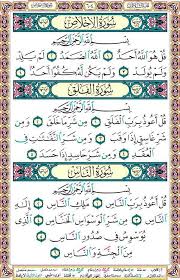 سُورَةُ الْإِخْلَاصِ
بِسْمِ اللَّهِ الرَّحْمَٰنِ الرَّحِيمِ
قُلْ هُوَ اللَّهُ أَحَدٌ ١ اللَّهُ الصَّمَدُ ٢ لَمْ يَلِدْ
وَلَمْ يُولَدْ ٣ وَلَمْ يَكُن لَّهُ كُفُوًا أَحَدٌ ٤
سُورَةُ الْفَلَقِ
بِسْمِ اللَّهِ الرَّحْمَٰنِ الرَّحِيمِ
قُلْ أَعُوذُ بِرَبِّ الْفَلَقِ ١ مِن شَرِّ مَا خَلَقَ ٢ وَمِن
شَرِّ غَاسِقٍ إِذَا وَقَبَ ٣ وَمِن شَرِّ النَّفَّاثَاتِ فِي
الْعُقَدِ ٤ وَمِن شَرِّ حَاسِدٍ إِذَا حَسَدَ ٥
سُورَةُ النَّاسِ
بِسْمِ اللَّهِ الرَّحْمَٰنِ الرَّحِيمِ
قُلْ أَعُوذُ بِرَبِّ النَّاسِ ١ مَلِكِ النَّاسِ ٢ إِلَٰهِ
النَّاسِ ٣ مِن شَرِّ الْوَسْوَاسِ الْخَنَّاسِ ٤ الَّذِي
يُوَسْوِسُ فِي صُدُورِ النَّاسِ ٥
مِنَ الْجِنَّةِ وَالنَّاسِ ٦